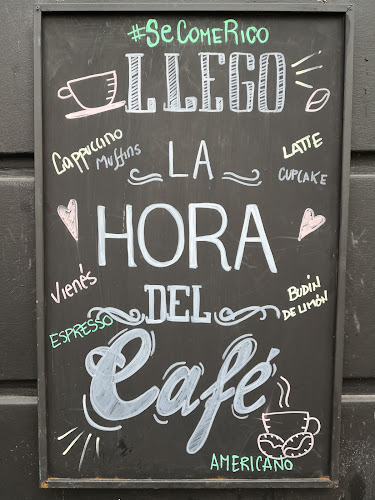 #SeComeRico
LLEGO
Cappuccino
Muffins
LA
LATTE
CUPCAKE
HORA
Vienés
DEL
BUDIN
DE LIMÓN
ESPRESSO
Café
AMERICANO